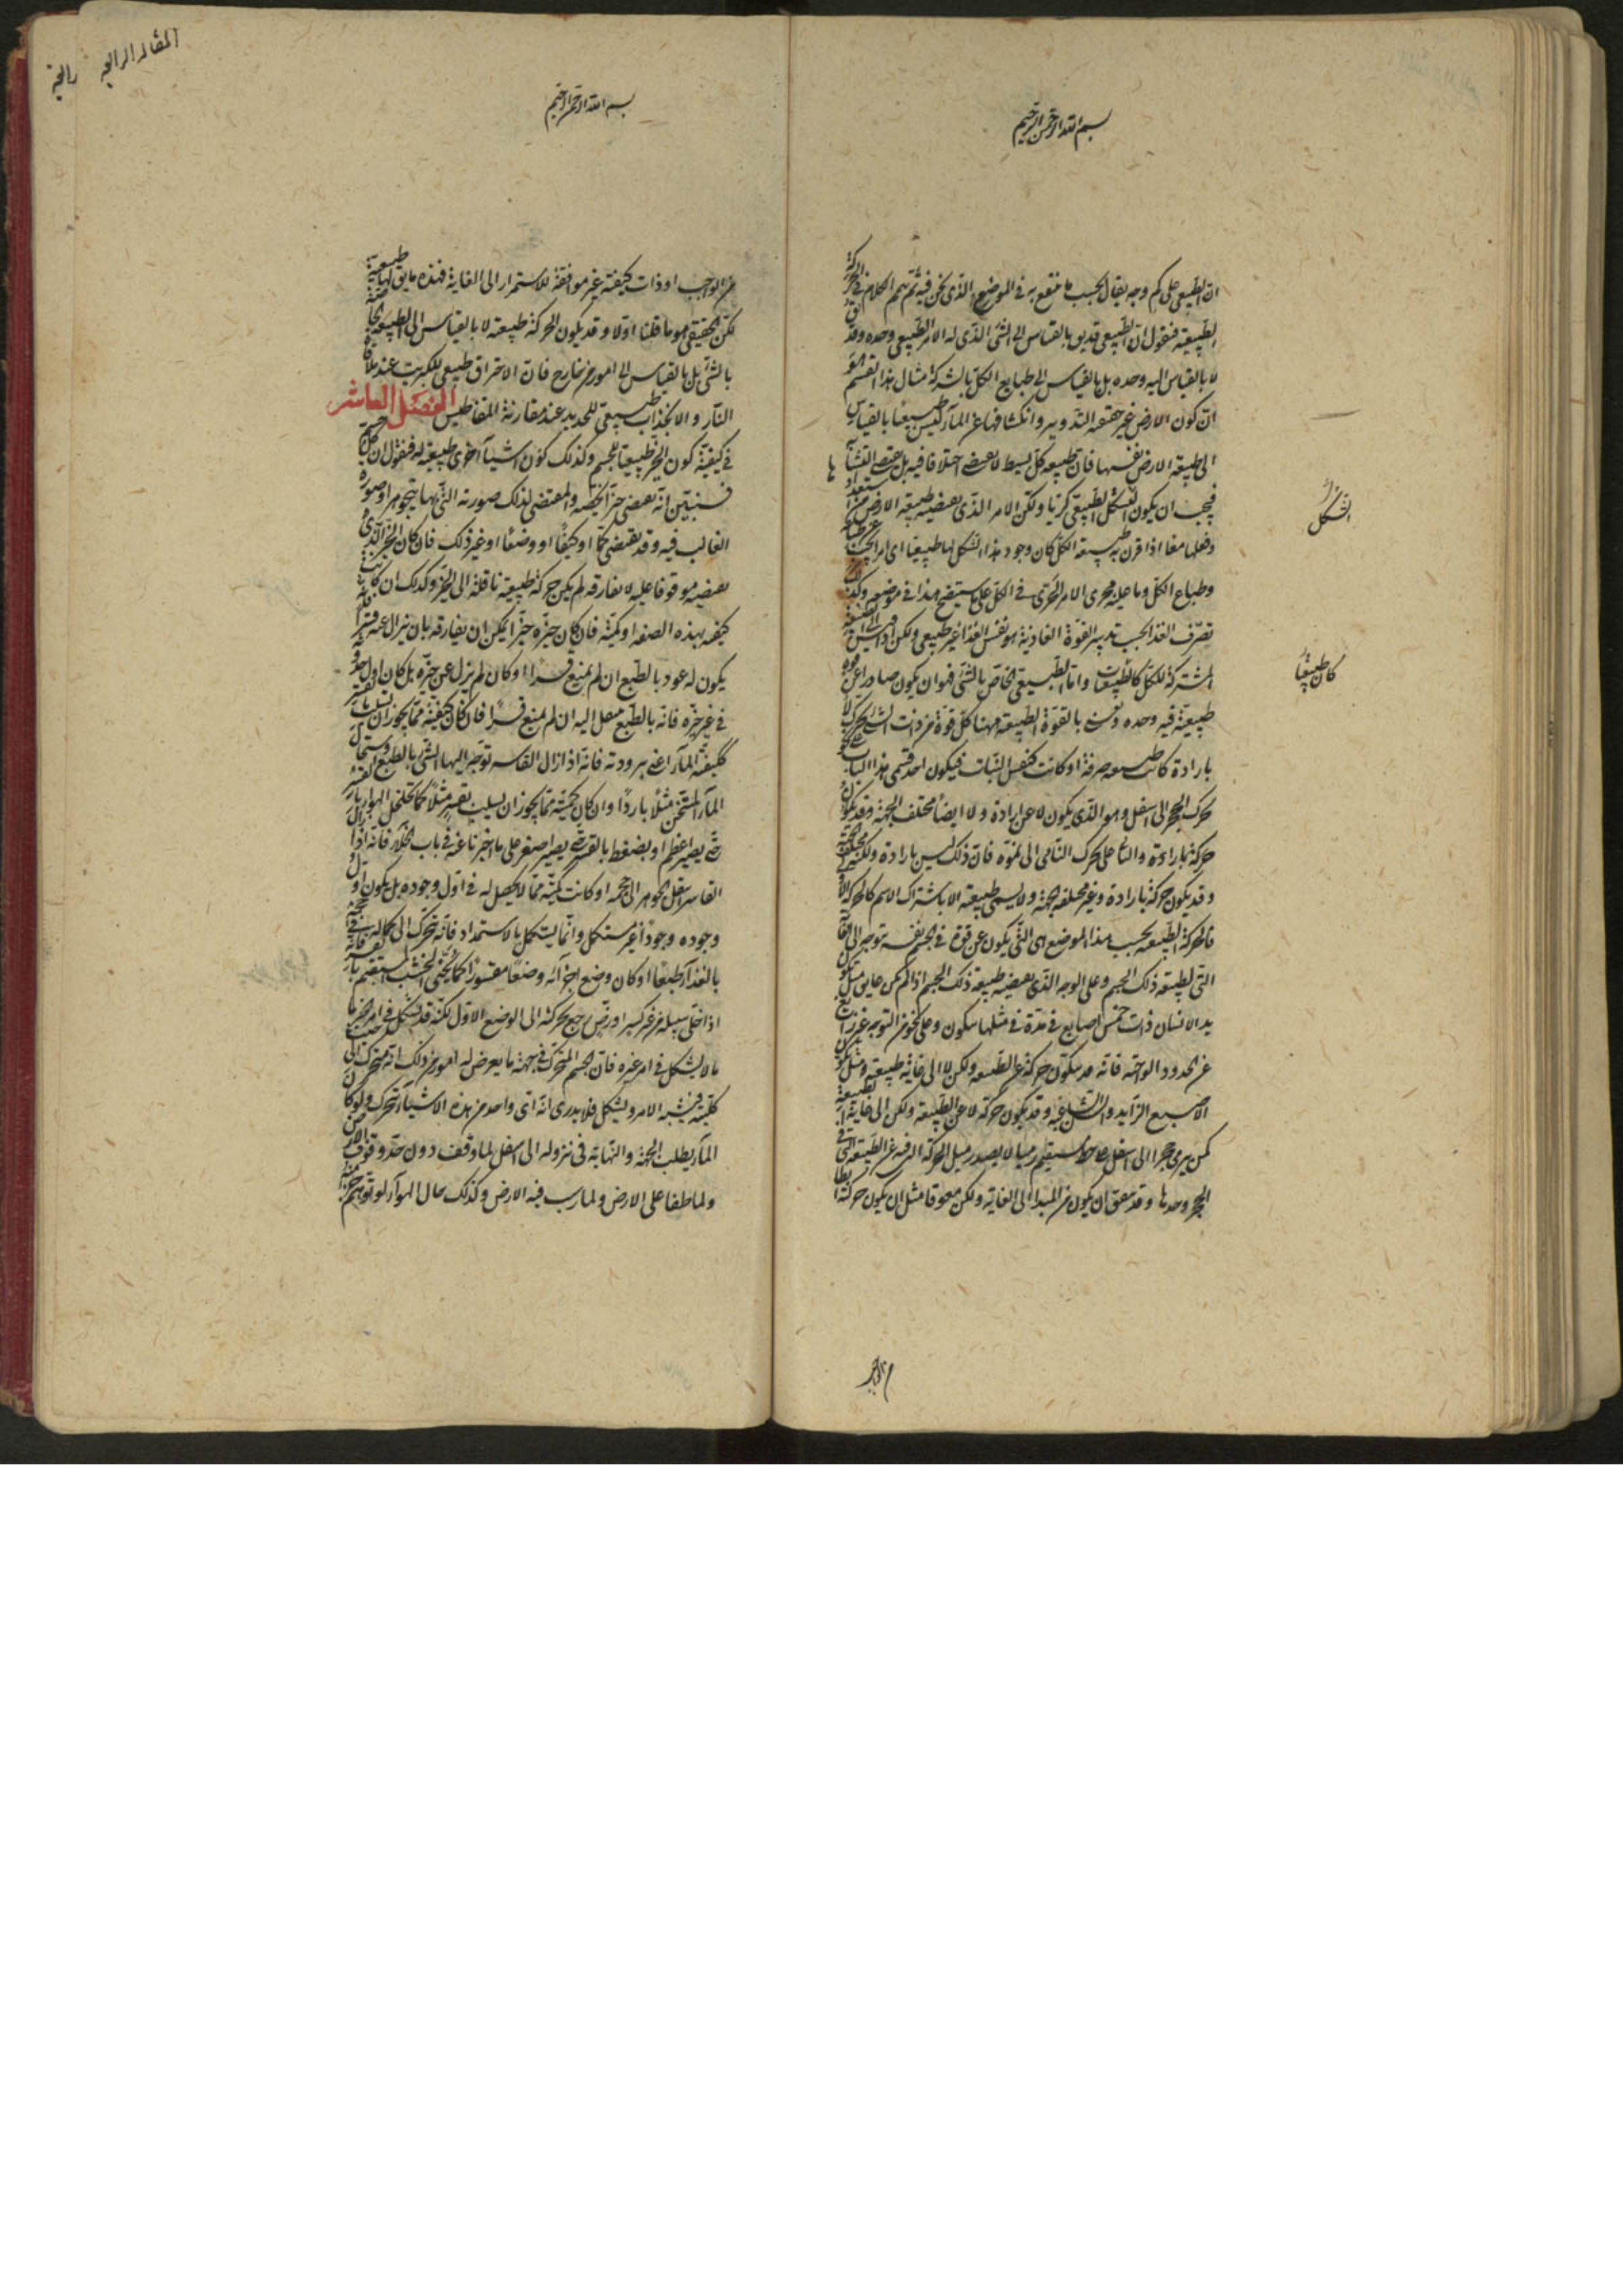 بسم الله الرحمن الرحيم
ان الطبيعى على كم وجه يقال بحسب ما ننتفع به فى الموضع الذى نحن فيه ثم نتم الكلام فى الحركة
الطبيعية فنقول ان الطبيعى قد يق بالقياس الى الشئ الذى له الامر الطبيعى وحده وقد
لا بالقياس اليه وحده بل بالقياس الى طبايع الكل بالشركة مثال هذا القسم
ان كون الارض غير حقيقة التدوير وانكشافها عن المآء ليس طبيعيا بالقياس
الى طبيعة الارض نفسها فان طبيعة كل بسيط لا تقتضى اختلافا فيه بل تقتضى التشابه
فيجب ان يكون الشكل الطبيعى كريا ولكن الامر الذى تقتضيه طبيعة الارض من
وفعلها معا اذا قرن به طبيعة الكل كان وجود هذا الشكل لها طبيعيا اى امرا يجب
وطباع الكل وما عليه مجرى الامر الجزئى فى الكل على ما سيتضح هذا فى موضعه وكذلك
تصرف الغذا بحسب تدبير القوة الغاذية هو لنفس الغذا غير طبيعى ولكن اذا قيس الى الطبيعة
المشتركة للكل كان طبيعيا واما الطبيعى الخاص بالشئ فهو ان يكون صادرا عن قوة
طبيعية فيه وحده ونعنى بالقوة الطبيعية ههنا كل قوة من ذات الشئ تحرك لا
بارادة كانت طبيعة صرفة او كانت كنفس النبات فيكون احد قسمى هذا الباب
تحرك الحجر الى اسفل وهو الذى يكون لا عن ارادة ولا ايضا مختلف الجهة وقد تكون
حركة بارادة والثانى على تحرك النامى الى نموه فان ذلك ليس بارادة ولكنه مختلف الجهة
وقد يكون حركة بارادة وغير مختلفة الجهة ولا يسمى طبيعية الا باشتراك الاسم كالحركة الاولى
فالحركة الطبيعية بحسب هذا الموضع هى التى يكون عن قوة فى الجسم نفسه تتوجه الى الغاية
التى لطبيعة ذلك الجسم وعلى الوجه الذى تقتضيه طبيعة ذلك الجسم اذا لم يكن عايق مثل تكون
يد الانسان ذات خمس اصابع فى مدة فى مثلها يتكون وعلى نحو من التوجه غير زايغ
عن الحدود الواجبة فانه قد يتكون حركة عن الطبيعة ولكن لا الى غاية طبيعية مثل تكون
الاصبع الزايد والسن الشاغية وقد يكون حركة لا عن الطبيعة ولكن الى غاية طبيعية
كمن يرمى حجرا الى اسفل على خط مستقيم رميا لا يصدر مثل الحركة التى فيه عن الطبيعة التى فى
الحجر وحدها وقد يتفق ان يكون من المبدا الى الغاية ولكن معوقا مثل ان يكون حركة ابطا
من الواجب
الشكل
كان طبيعيا
المقالة الرابعة
بسم الله الرحمن الرحيم
من الواجب او ذات كيفية غير موافقة للاستمرار الى الغاية فهذه ما يق لها طبيعية
لكن الحقيقى هو ما قلنا اولا وقد يكون الحركة طبيعية لا بالقياس الى الطبيعة الخاصة
بالشئ بل بالقياس الى امور من خارج فان الاحتراق طبيعى للكبريت عند ملاقاة
النار والانجذاب طبيعى للحديد عند مقارنة المغناطيس الفصل العاشر
فى كيفية كون الحيز طبيعيا للجسم وكذلك كون اشيآء اخرى طبيعية له فنقول ان كل جسم
فسنبين انه يقتضى حيزا يخصه والمقتضى لذلك صورته التى بها يتجوهر او صورة
الغالب فيه وقد يقتضى كما او كيفا او وضعا او غير ذلك فان كان الحيز الذى
يقتضيه موقوفا عليه لا يفارقه لم يكن حركة طبيعية ناقلة الى الحيز وكذلك ان كانت
كيفيته بهذه الصفة او كميته فان كان حيزه حيزا يمكن ان يفارقه بان يزال عنه قسرا فانه
يكون له عود بالطبع ان لم يمنع قسرا او كان لم يزل عن حيزه بل كان اول حدوثه
فى غير حيزه فانه بالطبع ينتقل اليه ان لم يمنع قسرا فان كان كيفيته مما يجوز ان تسلب بالقسر
ككيفية المآء اعنى برودته فانه اذا زال القاسر توجه اليها الشئ بالطبع واستحال
المآء المتسخن مثلا باردا وان كان كميته مما يجوز ان يسلب بقسر مثلا كما يتخلخل الهواء بالقسر
حتى يصير اعظم او يضغط بالقسر حتى يصير اصغر على ما اخبرنا عنه فى باب الخلاء فانه اذا زال
القاسر انتقل الجوهر الى حجمه او كانت كمية مما لا يحصل له فى اول وجوده بل يكون اول
وجوده وجودا غير مستكمل وانما يستكمل بالاستمداد فانه يتحرك الى كماله فى حجمه
بالغذآء طبعا او كان وضع اجزآئه وضعا مقسورا كما يحنى الخشب المستقيم بالقسر فانه
اذا خلى سبيله من غير كسر او رض رجع بحركته الى الوضع الاول لكنه قد يشكل فى امر الحيز ما
ما لا يشكل فى امر غيره فان الجسم المتحرك فى جهة ما يعرض له امور من ذلك انه متحرك الى حيث
كليته فيشبه الامر ويشكل فلا يدرى انه اى واحد من هذه الاشيآء يتحرك ولو كان
المآء يطلب الجهة والنهاية فى نزوله الى اسفل لما وقف دون حد وقوف الارض
ولما طفا على الارض ولما رسب فيه الارض وكذلك حال الهوآء لو توهم جزءا منه